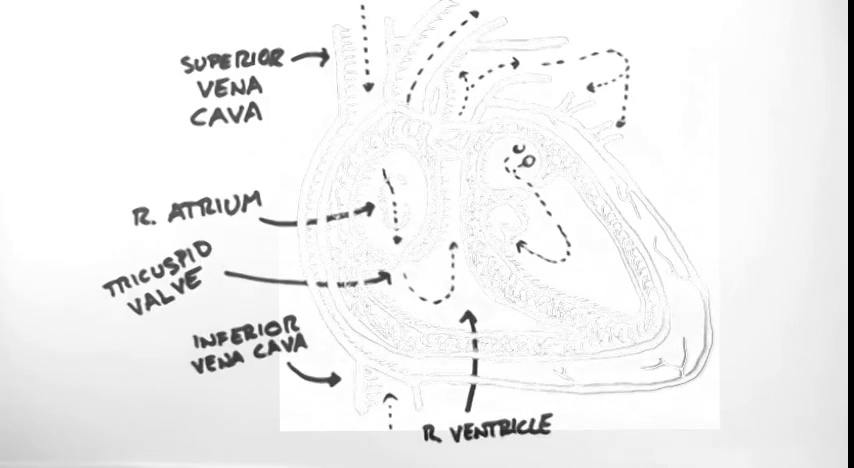 SUPERIOR
VENA
CAVA
R. ATRIUM
TRICUSPID
VALVE
INFERIOR
VENA CAVA
R. VENTRICLE